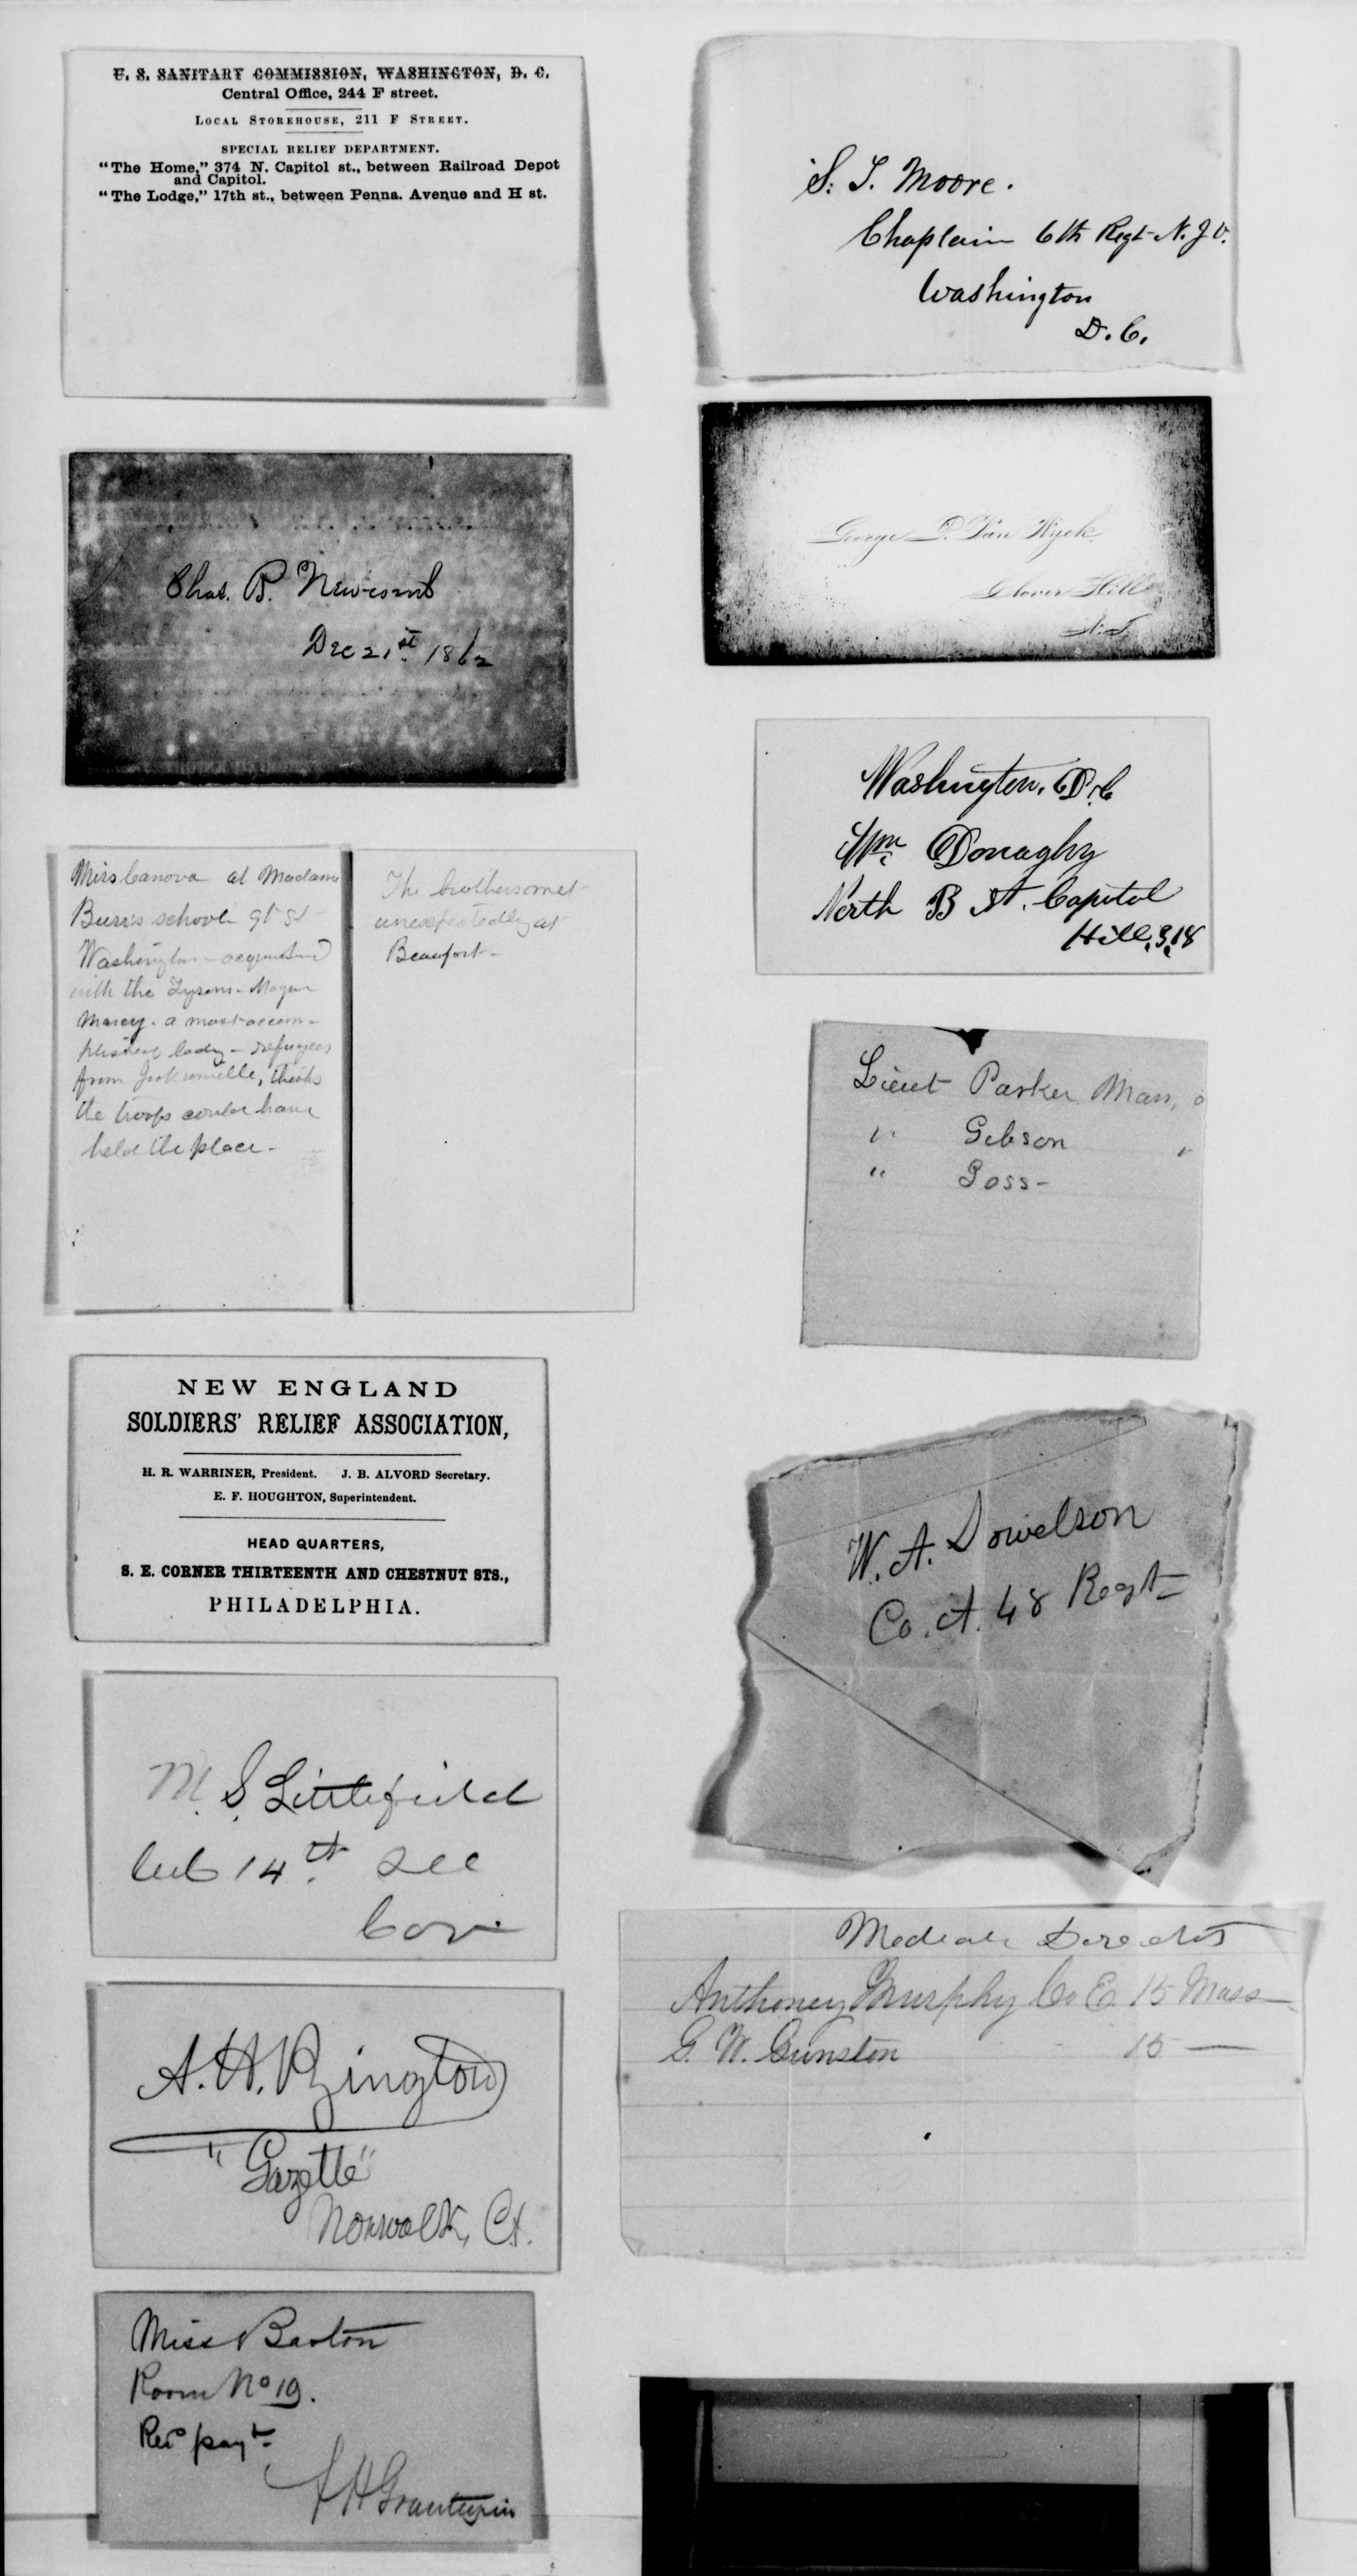 U. S. SANITARY COMMISSION, WASHINGTON, D. C.
Central Office, 244 F street.
LOCAL STOREHOUSE, 211 F STREET.
SPECIAL RELIEF DEPARTMENT.
"The Home," 374 N. Capitol st., between Railroad Depot
and Capitol.
"The Lodge," 17th st., between Penna. Avenue and H st.
Chas. B. Newcomb
Dec 21st. 1862
Miss Canova at Madame
Burr's school 9th St
Washington - acquainted
with the Mayor
Marcy. a most accom-
plished lady - refugees
from Jacksonville, thinks
the troops could have
held the place -
The brothers met
unexpectedly at
Beaufort -
NEW ENGLAND
SOLDIERS' RELIEF ASSOCIATION,
H. R. WARRINER, President. J. B. ALVORD Secretary.
E. F. HOUGHTON, Superintendent.
HEAD QUARTERS,
S. E. CORNER THIRTEENTH AND CHESTNUT STS.,
PHILADELPHIA.
M. S. Littlefield
14th
A. H. Byington
"Gazette"
Norwalk, Ct.
Miss Barton
Room No 19.
Rec'd payt.
S. T. Moore.
Chaplain 6th Regt N. J. V.
Washington
D. C.
George D. Van Wyck
Clover Hill
N. J.
Washington, D. C
Wm Donaghy
North B St. Capitol
Hill, 318
Lieut Parker Mass,
" Gibson "
" Goss -
W. A. Dowelson
Co. A. 48 Regt
Medical Director
Anthoney Murphy Co E 15 Mass
G. W. Cunston 15 —